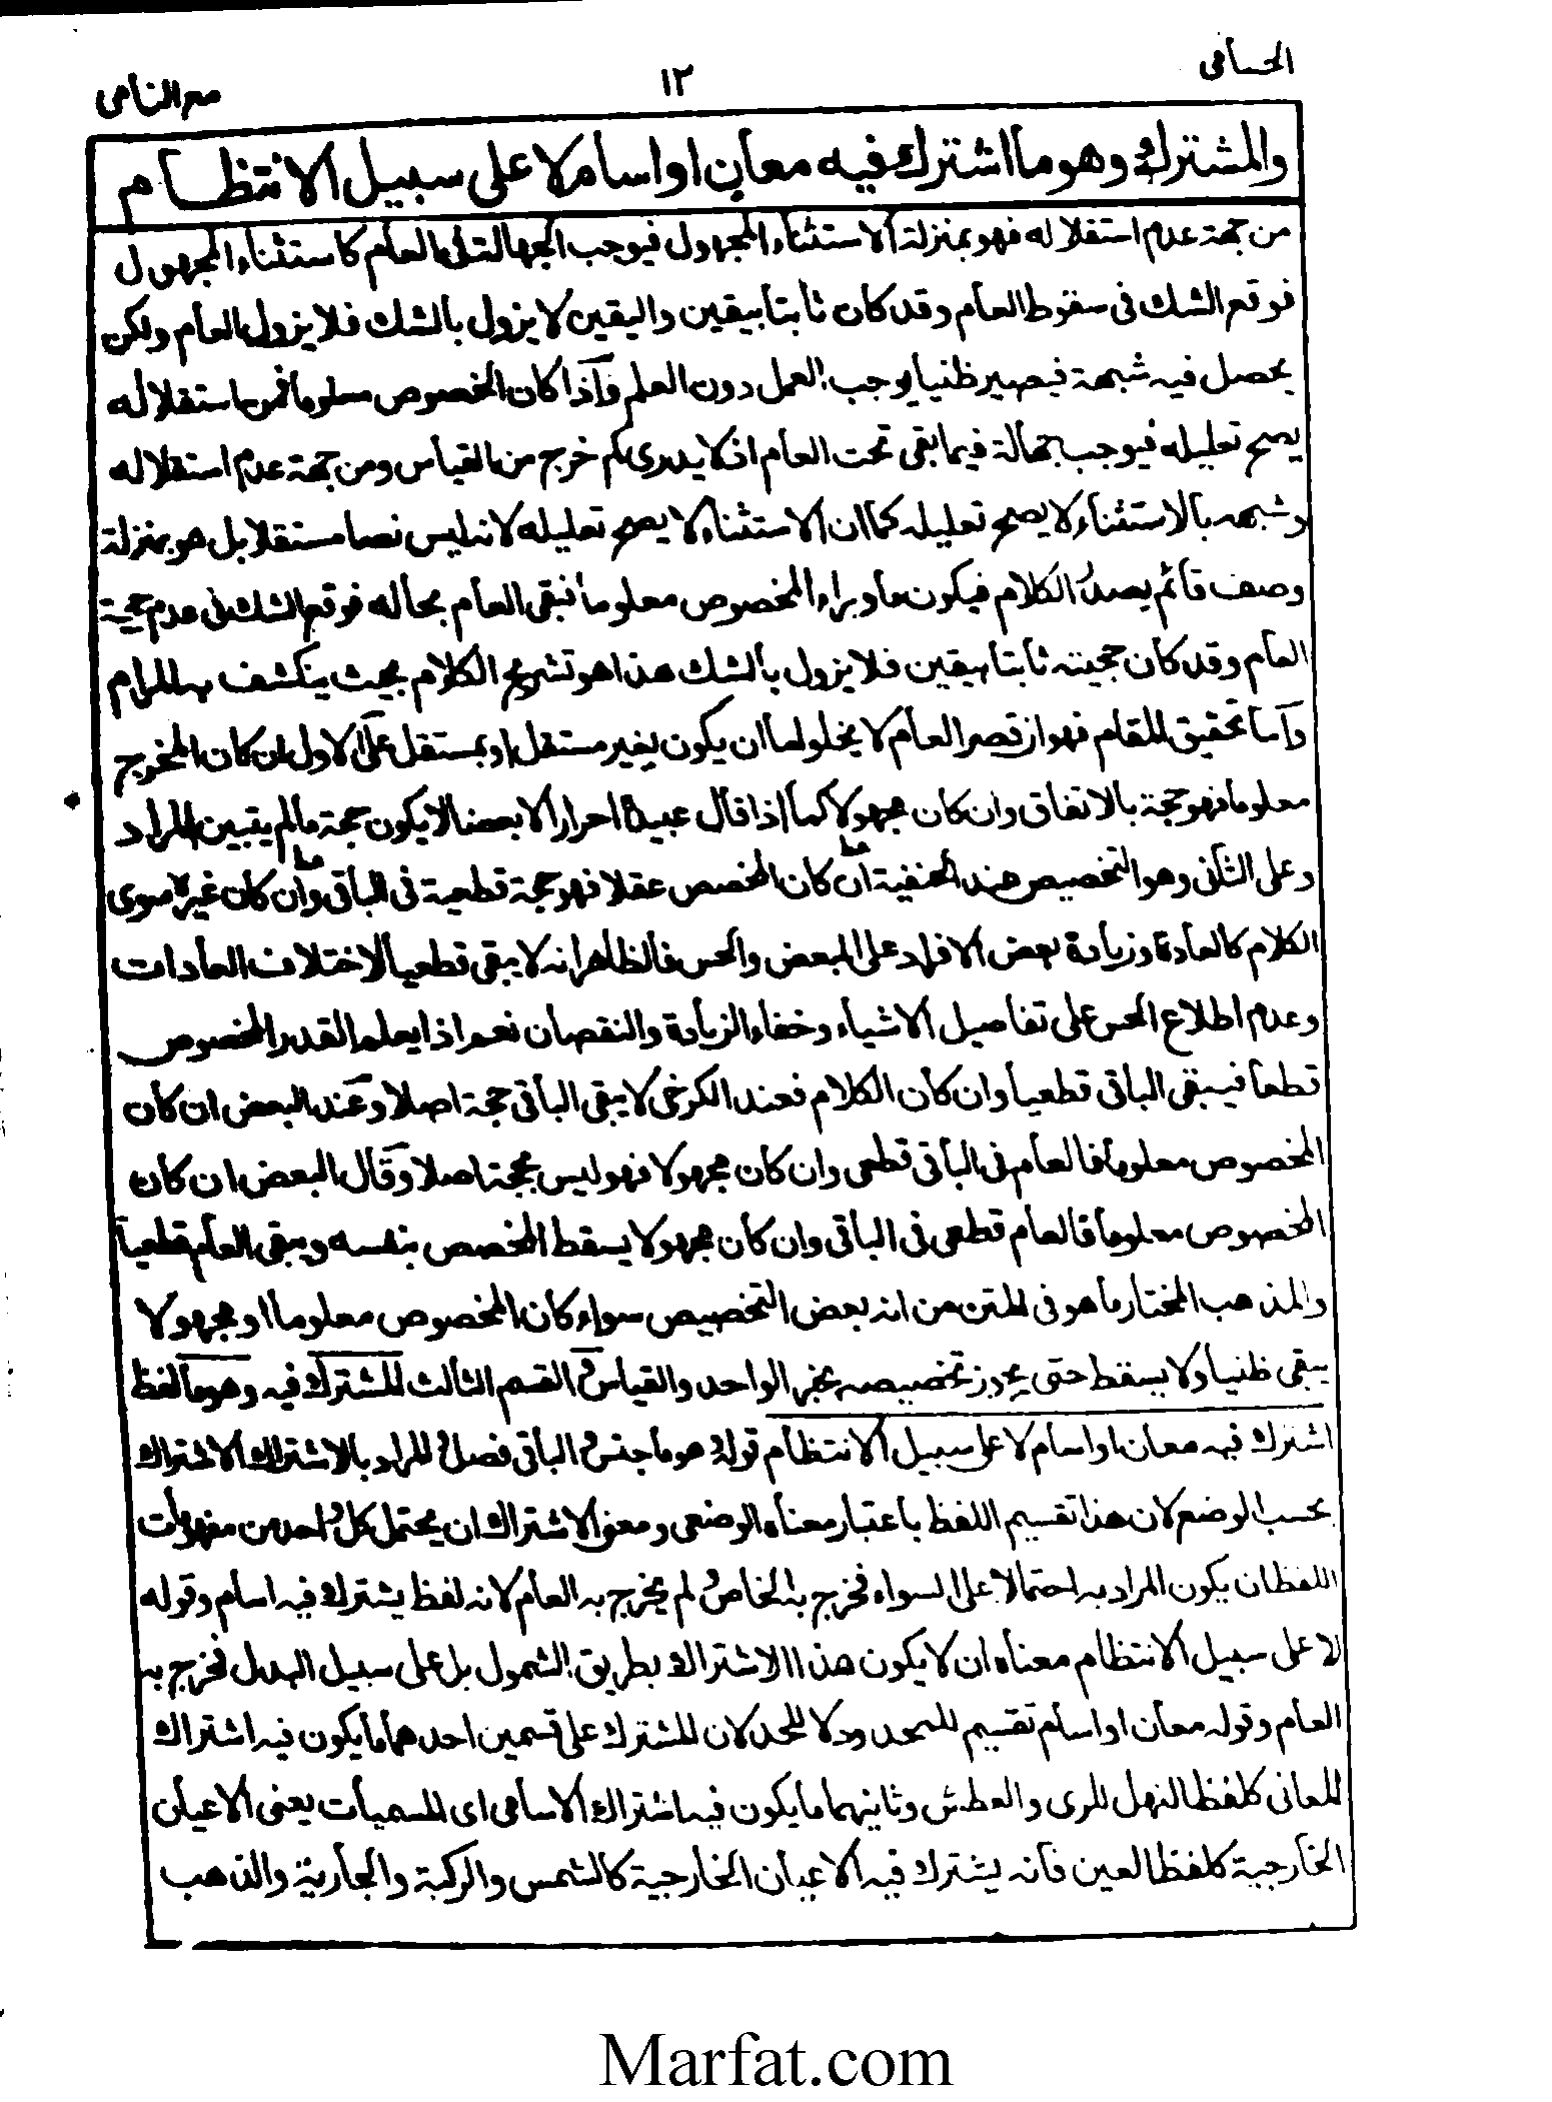 الحسامی
١٢
مع النامی
والمشترك وهو ما اشترك فيه معان او اسام لا على سبيل الانتظام
من جهة عدم استقلاله فهو بمنزلة الاستثناء المجهول فيوجب الجهالة فى العام كاستثناء المجهول
فوقع الشك فى سقوط العام وقد كان ثابتا بيقين واليقين لا يزول بالشك فلا يزول العام ولكن
يحصل فيه شبهة فيصير ظنيا يوجب العمل دون العلم واذا كان الخصوص معلوما فمن استقلاله
يصح تعليله فيوجب جهالة فيما بقى تحت العام اذ لا يدرى كم خرج من القياس ومن جهة عدم استقلاله
وشبهه بالاستثناء لا يصح تعليله كما ان الاستثناء لا يصح تعليله لانه ليس نصا مستقلا بل هو بمنزلة
وصف قائم بصدر الكلام فيكون ما وراء المخصوص معلوما فبقى العام بحاله فوقع الشك فى عدم حجية
العام وقد كان حجيته ثابتا بيقين فلا يزول بالشك هذا هو تشريح الكلام بحيث ينكشف به المرام
واما تحقيق المقام فهو ان قصر العام لا يخلو اما ان يكون بغير مستقل او بمستقل على الاول ان كان المخرج
معلوما فهو حجة بالاتفاق وان كان مجهولا كما اذا قال عبيدى احرار الا بعضا لا يكون حجة مالم يتبين المراد
وعلى الثانى وهو التخصيص عند الحنفية ان كان المخصص عقلا فهو حجة قطعية فى الباقى وان كان غيره سوى
الكلام كالعادة وزيادة بعض الافراد على البعض والحس فالظاهر انه لا يبقى قطعيا لاختلاف العادات
وعدم اطلاع الحس على تفاصيل الاشياء وخفاء الزيادة والنقصان نعم اذا يعلم القدر المخصوص
قطعا فيبقى الباقى قطعيا وان كان الكلام فعند الكرخى لا يبقى الباقى حجة اصلا وعند البعض ان كان
المخصوص معلوما فالعام فى الباقى قطعى وان كان مجهولا فهو ليس بحجة اصلا وقال البعض ان كان
المخصوص معلوما فالعام قطعى فى الباقى وان كان مجهولا يسقط المخصص بنفسه ويبقى العام قطعيا
والمذهب المختار ما هو فى المتن من انه بعض التخصيص سواء كان المخصوص معلوما او مجهولا
يبقى ظنيا ولا يسقط حتى يجوز تخصيصه بخبر الواحد والقياس والقسم الثالث المشترك فيه وهو ما لفظ
اشترك فيه معان او اسام لا على سبيل الانتظام قوله هو ما جنس والباقى فصل والمراد بالاشتراك الاشتراك
بحسب الوضع لان هذا تقسيم اللفظ باعتبار معناه الوضعى ومعنى الاشتراك ان يحتمل كل واحد من مفهومات
اللفظ ان يكون المراد به احتمالا على السواء فخرج به الخاص ولم يخرج به العام لانه لفظ يشترك فيه اسام وقوله
لا على سبيل الانتظام معناه ان لا يكون هذا الاشتراك بطريق الشمول بل على سبيل البدل فخرج به
العام وقوله معان او اسام تقسيم للمحدود لا للحد لان المشترك على قسمين احدهما ما يكون فيه اشتراك
المعانى كلفظ النهل للرى والعطش وثانيهما ما يكون فيه اشتراك الاسامى اى المسميات يعنى الاعيان
الخارجية كلفظ العين فانه يشترك فيه الاعيان الخارجية كالشمس والركبة والجارية والذهب
Marfat.com